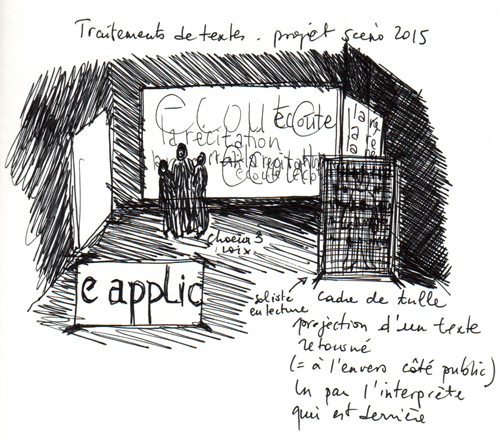 Traitements de textes. projet scèno 2015
écou
écoute
la récitation
récitation
écoute
la
la
la
choeur 3
voix
e applic
soliste
en lecture
cadre de tulle
projection d'un texte
retourné
(= à l'envers côté public)
lu par l'interprète
qui est derrière